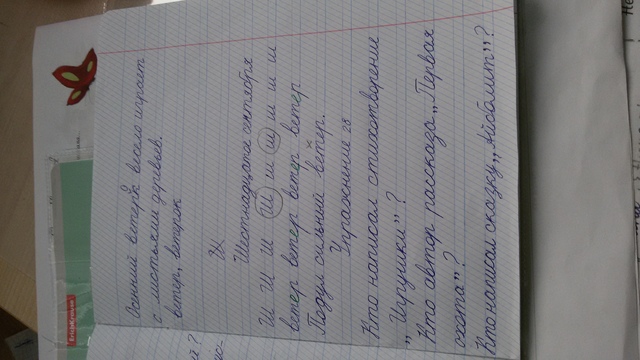 Осенний ветерок весело играет
с листьями деревьев.
ветер, ветерок
Шестнадцатое сентября
Ш Ш Ш Ш ш ш ш ш ш
ветер ветер ветер ветер
Подул сильный ветер.
Упражнение 28
Кто написал стихотворение
„Игрушки"?
Кто автор рассказа „Первая
охота"?
Кто написал сказку „Айболит"?
ErichKrause